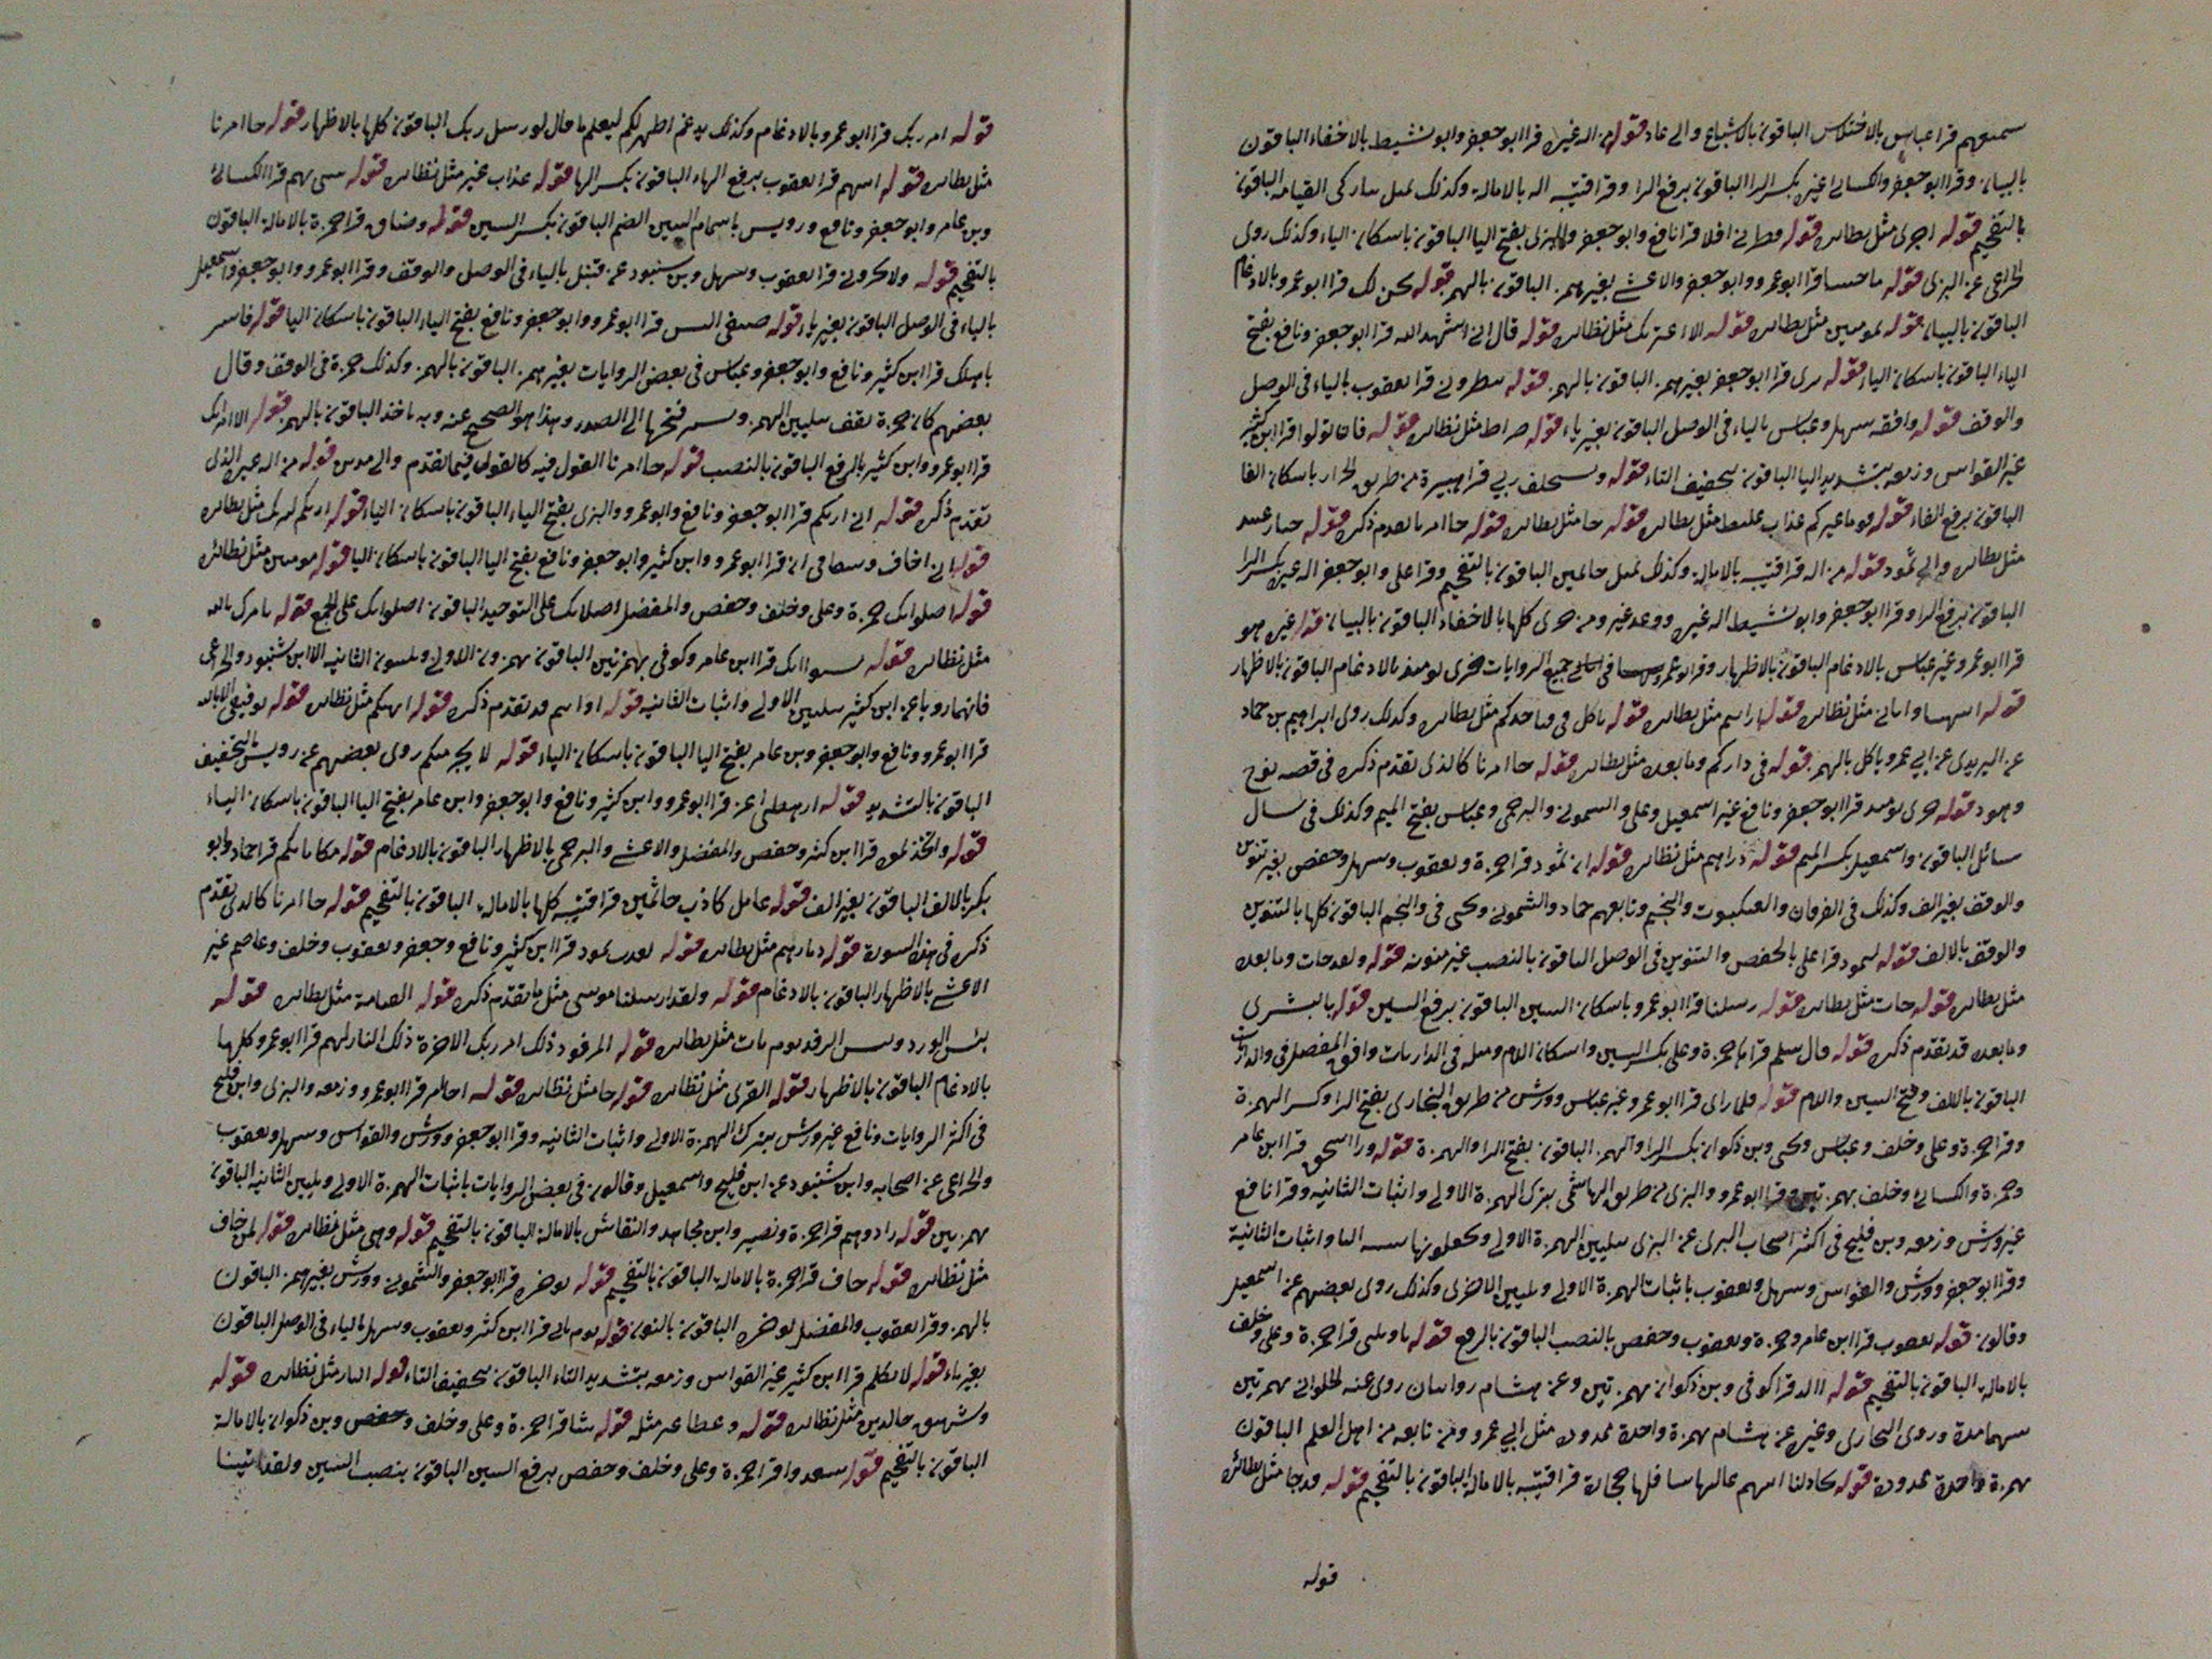 سمتعهم قرا عباس بالاختلاس الباقون بالاشباع والى عاد قوله من اله غيره قرا ابو جعفر وابو نشيط بالاخفاء الباقون
بالبيان وقرا ابو جعفر والكسائى غيره بكسر الرا الباقون برفع الرا وقرا قتيبه اله بالامالة وكذلك القيامه الباقون
بالتفخيم قوله اجرى مثل نظائره قوله فطرنى افلا قرا نافع وابو جعفر والبزى بفتح اليا الباقون باسكان الياء وكذلك روى
عن البزى قوله ما جيتنا قرا ابو عمرو وابو جعفر والاعشى بغير همز الباقون بالهمز قوله نحن لك قرا ابو عمرو بالادغام
الباقون بالبيان قوله بمومنين مثل نظائره قوله الا اعتريك مثل نظائره قوله قال انى اشهد الله قرا ابو جعفر ونافع بفتح
الياء الباقون باسكان الياء قوله برى قرا ابو جعفر بغير همز الباقون بالهمز قوله تنظرونى قرا يعقوب بالياء فى الوصل
والوقف قوله وافقه سهل وعباس بالياء فى الوصل الباقون بغير ياء قوله صراط مثل نظائره قوله فان تولوا قرا ابن كثير
غير القواس وزمعه بتشديد اليا الباقون بتخفيف التاء قوله ويستخلف ربى قرا هبيرة من طريق الخزاز باسكان الفا
الباقون برفع الفاء قوله قوما غيركم عذاب غليظ مثل نظائره قوله جا مثل نظائره قوله جا امرنا تقدم ذكره قوله جبار عنيد
مثل نظائره والى ثمود قوله من اله قرا قتيبه بالامالة وكذلك جاثمين الباقون بالتفخيم وقرا على وابو جعفر اله غيره بكسر الرا
الباقون برفع الرا وقرا ابو جعفر وابو نشيط اله غيره ووعد غير ومن خزى كلها بالاخفاء الباقون بالبيان قوله غيره هو
قرا ابو عمرو غير عباس بالادغام الباقون بالاظهار وقرا ابو عمرو فى جميع الروايات خزى يومئذ بالادغام الباقون بالاظهار
قوله اتنهانا واتانى مثل نظائره قوله ارايتم مثل نظائره قوله تاكل فى فياخذكم مثل نظائره وكذلك روى ابراهيم بن حماد
عن اليزيدى عن ابى عمرو تاكل بالهمز قوله فى داركم وما بعده مثل نظائره قوله جا امرنا كالذى تقدم ذكره فى قصه نوح
وهود قوله خزى يومئذ قرا ابو جعفر ونافع غير اسمعيل وعلى والشمونى والبرجمى وعباس بفتح الميم وكذلك فى سال
سائل الباقون واسمعيل بكسر الميم قوله دراهم مثل نظائره قوله ان ثمود قرا حمزة ويعقوب وسهل وحفص بغير تنوين
والوقف بغير الف وكذلك فى الفرقان والعنكبوت والنجم وتابعهم حماد والشمونى ويحيى فى والنجم الباقون كلها بالتنوين
والوقف بالالف قوله لثمود قرا على بالخفض والتنوين فى الوصل الباقون بالنصب غير منونه قوله ولقد جات وما بعده
مثل نظائره قوله جات مثل نظائره قوله رسلنا قرا ابو عمرو باسكان السين الباقون برفع السين قوله بالبشرى
وما بعده قد تقدم ذكره قوله قال سلم قراها حمزة وعلى بكسر السين واسكان اللام ومثله فى الذاريات وافق المفضل فى والذاريات
الباقون باللف وفتح السين واللام قوله فلما راى قرا ابو عمرو غير عباس وورش من طريق البخارى بفتح الرا وكسر الهمزة
وقرا حمزة وعلى وخلف وعباس ويحيى وبن ذكوان بكسر الرا والهمز الباقون بفتح الرا والهمزة قوله ورا اسحق قرا ابن عامر
وحمزة والكسائى وخلف بهمزتين وقرا ابو عمرو والبزى من طريق الهاشمى بترك الهمزة الاولى واثبات الثانيه وقرا نافع
غير ورش وزمعه وبن فليح فى اكثر اصحاب البزى عن البزى بتليين الهمزة الاولى ويجعلونها واثبات الثانية
وقرا ابو جعفر وورش والقواس وسهل ويعقوب باثبات الهمزة الاولى وتليين الاخرى وكذلك روى بعضهم عن اسمعيل
وقالون قوله يعقوب قرا ابن عامر وحمزة ويعقوب وحفص بالنصب الباقون بالرفع قوله يا ويلتى قرا حمزة وعلى وخلف
بالامالة الباقون بالتفخيم قوله االد قرا كوفى وبن ذكوان بهمزتين وعن هشام روايتان روى عنه الحلوانى بهمزتين
بينهما مدة وروى البخارى وغيره عن هشام بهمزة واحدة ممدودة مثل ابى عمرو ومن تابعه من اهل العلم الباقون
بهمزة واحدة ممدودة قوله يجادلنا اتيهم عاليها سافلها حجارة قرا قتيبه بالامالة الباقون بالتفخيم قوله قد جا مثل نظائره
قوله
قوله امر ربك قرا ابو عمرو بالادغام وكذلك يدغم اطهر لكم ليعلم ما قال لو رسل ربك الباقون كلها بالاظهار قوله جا امرنا
مثل نظائره قوله اتيهم قرا يعقوب برفع الهاء الباقون بكسر الها قوله عذاب غير مثل نظائره قوله سىء بهم قرا الكسائى
وبن عامر وابو جعفر ونافع ورويس باشمام السين الضم الباقون بكسر السين قوله وضاق قرا حمزة بالامالة الباقون
بالتفخيم قوله ولا تخزونى قرا يعقوب وسهل وبن شنبوذ عن قنبل بالياء فى الوصل والوقف وقرا ابو عمرو وابو جعفر واسمعيل
بالياء فى الوصل الباقون بغير ياء قوله ضيفى اليس قرا ابو عمرو وابو جعفر ونافع بفتح الياء الباقون باسكان اليا قوله فاسر
باهلك قرا ابن كثير ونافع وابو جعفر وعباس فى بعض الروايات بغير همز الباقون بالهمز وكذلك حمزة فى الوقف وقال
بعضهم كان حمزة يقف بتليين الهمز ويشير فتحها الى الصدر وهذا هو الصحيح عنه وبه ناخذ الباقون بالهمز قوله الا امراتك
قرا ابو عمرو وابن كثير بالرفع الباقون بالنصب قوله جا امرنا القول فيه كالقول فيما تقدم والى مدين قوله من اله غيره الذى
تقدم ذكره قوله انى اريكم قرا ابو جعفر ونافع وابو عمرو والبزى بفتح الياء الباقون باسكان الياء قوله اريكم نريك مثل نظائره
قوله انى اخاف وشقاقى ان قرا ابو عمرو وابن كثير وابو جعفر ونافع بفتح اليا الباقون باسكان اليا قوله مومنين مثل نظائره
قوله اصلواتك حمزة وعلى وخلف وحفص والمفضل اصلاتك على التوحيد الباقون اصلواتك على الجمع قوله تامرك بالله
مثل نظائره قوله نشوا انك قرا ابن عامر وكوفى بهمزتين الباقون بهمزون الاولى ويلينون الثانيه الا ابن شنبوذ والخزاعى
فانهما رويا عن ابن كثير بتليين الاولى واثبات الثانيه قوله ارايتم قد تقدم ذكره قوله انهيكم مثل نظائره قوله توفيقى الا بالله
قرا ابو عمرو ونافع وابو جعفر وبن عامر بفتح اليا الباقون باسكان الياء قوله لا يجرمنكم روى بعضهم عن رويس بالتخفيف
الباقون بالتشديد قوله ارهطى اعز قرا ابو عمرو وابن كثير ونافع وابو جعفر وابن عامر بفتح اليا الباقون باسكان الياء
قوله واتخذتموه قرا ابن كثير وحفص والمفضل والاعشى والبرجمى بالاظهار الباقون بالادغام قوله مكاناتكم قرا حماد وابو
بكر بالالف الباقون بغير الف قوله عامل كاذب جاثمين قرا قتيبه كلها بالامالة الباقون بالتفخيم قوله جا امرنا كالذى تقدم
ذكره فى هذه السورة قوله ديارهم مثل نظائره قوله بعدت ثمود قرا ابن كثير ونافع وجعفر ويعقوب وخلف وعاصم غير
الاعشى بالاظهار الباقون بالادغام قوله ولقد ارسلنا موسى مثل ما تقدم ذكره قوله القيامة مثل نظائره قوله
بئس الورد وبئس الرفد يوم يات مثل نظائره قوله المرفود ذلك امر ربك الاخرة ذلك النار لهم قرا ابو عمرو كلها
بالادغام الباقون بالاظهار قوله القرى مثل نظائره قوله جا مثل نظائره قوله جا امر قرا ابو عمرو وزمعه والبزى وابن فليح
فى اكثر الروايات ونافع غير ورش بترك الهمزة الاولى واثبات الثانيه وقرا ابو جعفر وورش والقواس وسهل ويعقوب
والخزاعى عن اصحابه وابن شنبوذ عن ابن فليح واسمعيل وقالون فى بعض الروايات باثبات الهمزة الاولى وتليين الثانيه الباقون
بهمزتين قوله زادوهم قرا حمزة ونصير وابن مجاهد والنقاش بالامالة الباقون بالتفخيم قوله وهى مثل نظائره قوله لمن خاف
مثل نظائره قوله خاف قرا حمزة بالامالة الباقون بالتفخيم قوله نوخره قرا ابو جعفر والشمونى وورش بغير همز الباقون
بالهمز وقرا يعقوب والمفضل يوخره الباقون بالنون قوله يوم ياتى قرا ابن كثير ويعقوب وسهل بالياء فى الوصل الباقون
بغير ياء قوله لا تكلم قرا ابن كثير غير القواس وزمعه بتشديد التاء الباقون بتخفيف التاء قوله النار مثل نظائره قوله
وشهيق خالدين مثل نظائره قوله وعطا غير مثله قوله شا قرا حمزة وعلى وخلف وحفص وبن ذكوان بالامالة
الباقون بالتفخيم قوله سعدوا قرا حمزة وعلى وخلف وحفص برفع السين الباقون بنصب السين ولقد اتينا